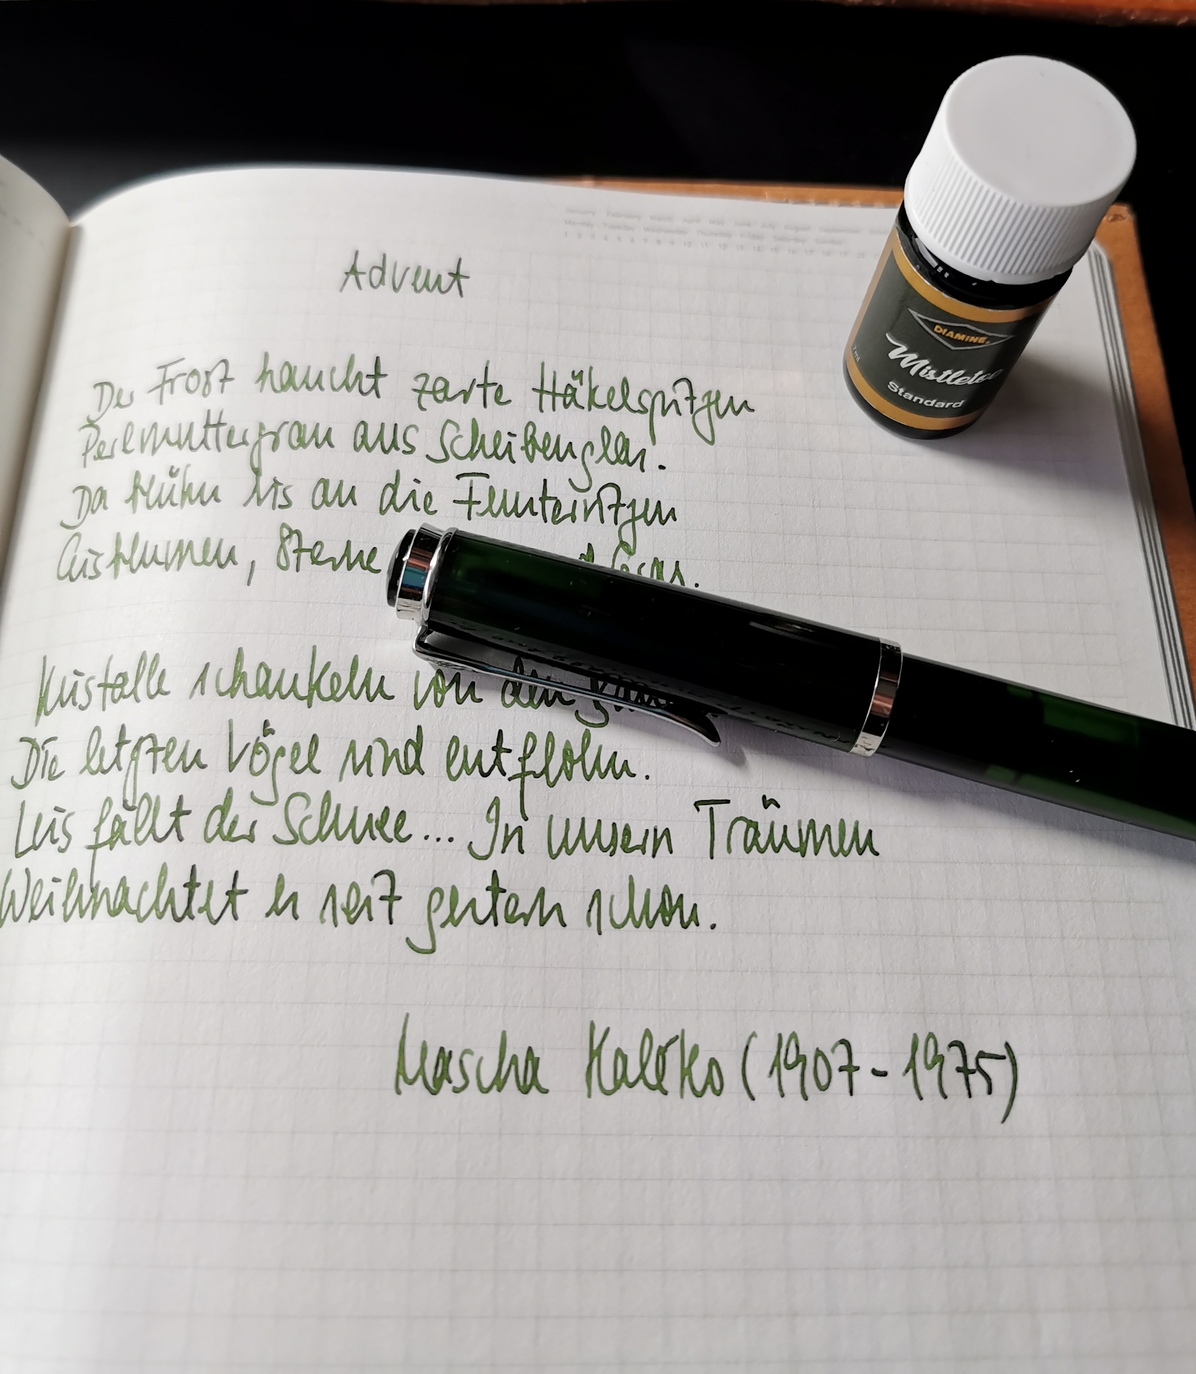 Advent
Der Frost haucht zarte Häkelspitzen
Perlmuttergrau aus Scheibenglas.
Da blühn bis an die Fensterritzen
Eisblumen, Sterne Gras.
Kristalle schaukeln von den
Die letzten Vögel sind entflohn.
Leis fällt der Schnee... In unsern Träumen
Weihnachtet es seit gestern schon.
Mascha Kaléko (1907-1975)
DIAMINE
Mistletoe
Standard